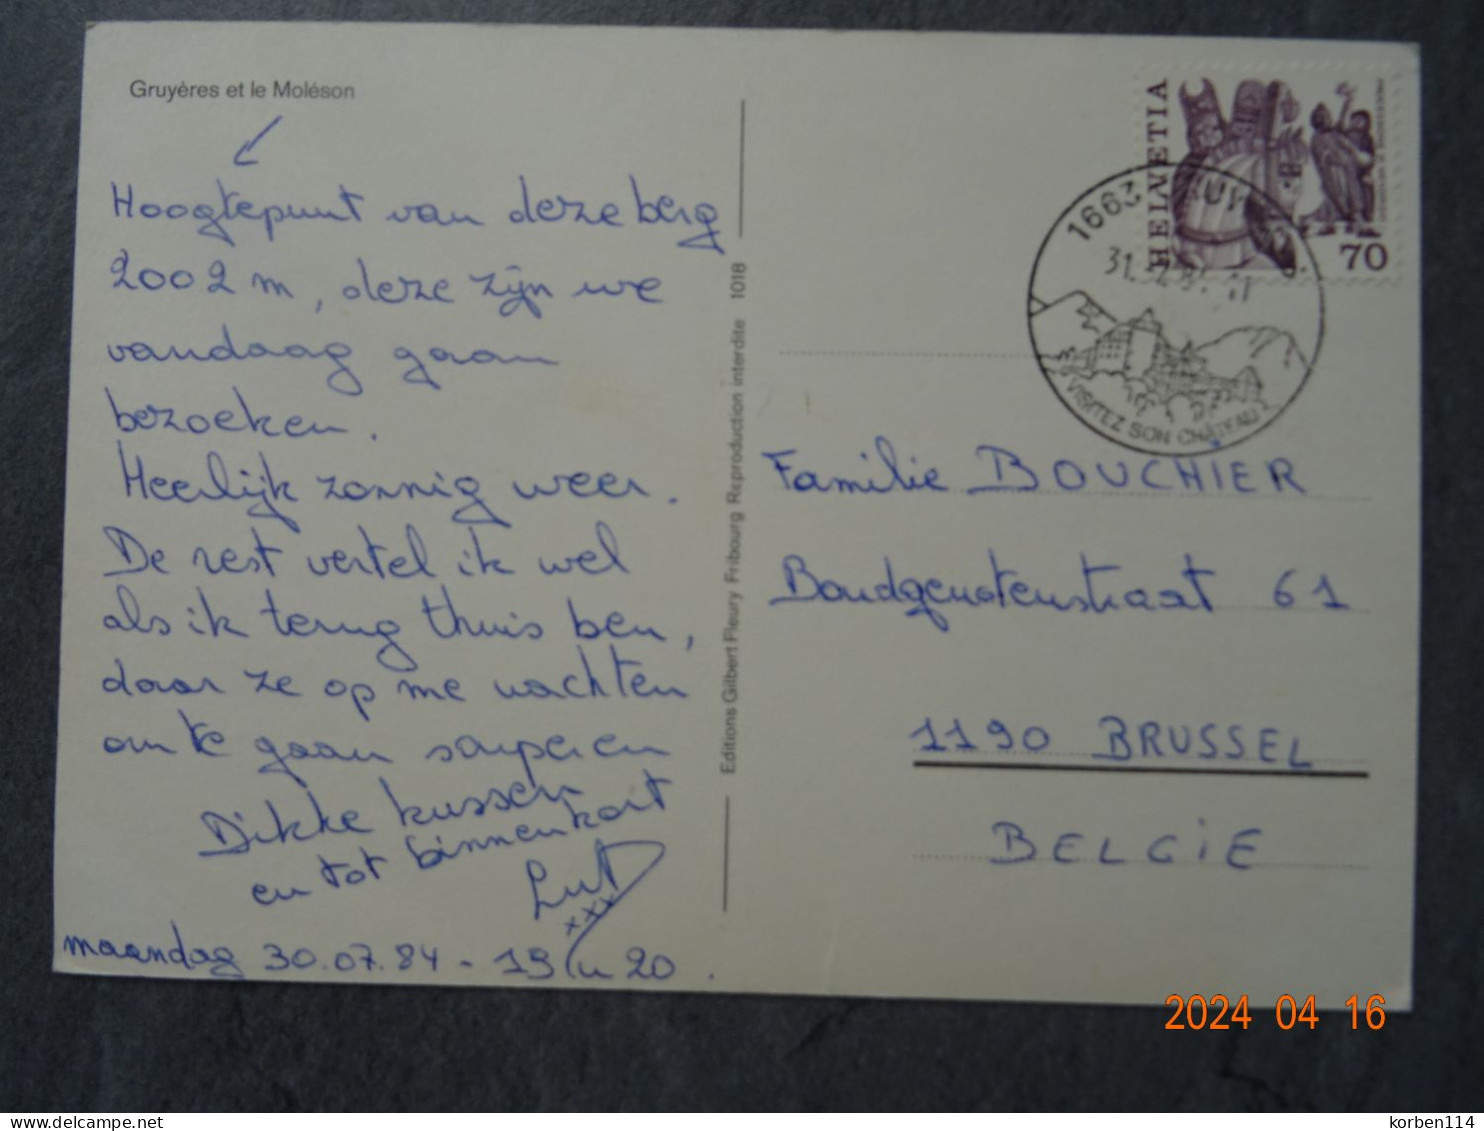 Gruyères et le Moléson
Hoogtepunt van deze berg
2002 m, deze zijn we
vandaag gaan
bezoeken.
Heerlijk zonnig weer.
De rest vertel ik wel
als ik terug thuis ben,
daar ze op me wachten
om te gaan souperen
Dikke kussen
en tot binnenkort
Lut
xxx
maandag 30.07.84 - 19u20.
Editions Gilbert Fleury Fribourg Reproduction interdite 1018
HELVETIA
70
1663
31.
VISITEZ SON CHÂTEAU
Familie BOUCHIER
Bondgenotenstraat 61
1190 BRUSSEL
BELGIE
2024 04 16
delcampe.net
korben114